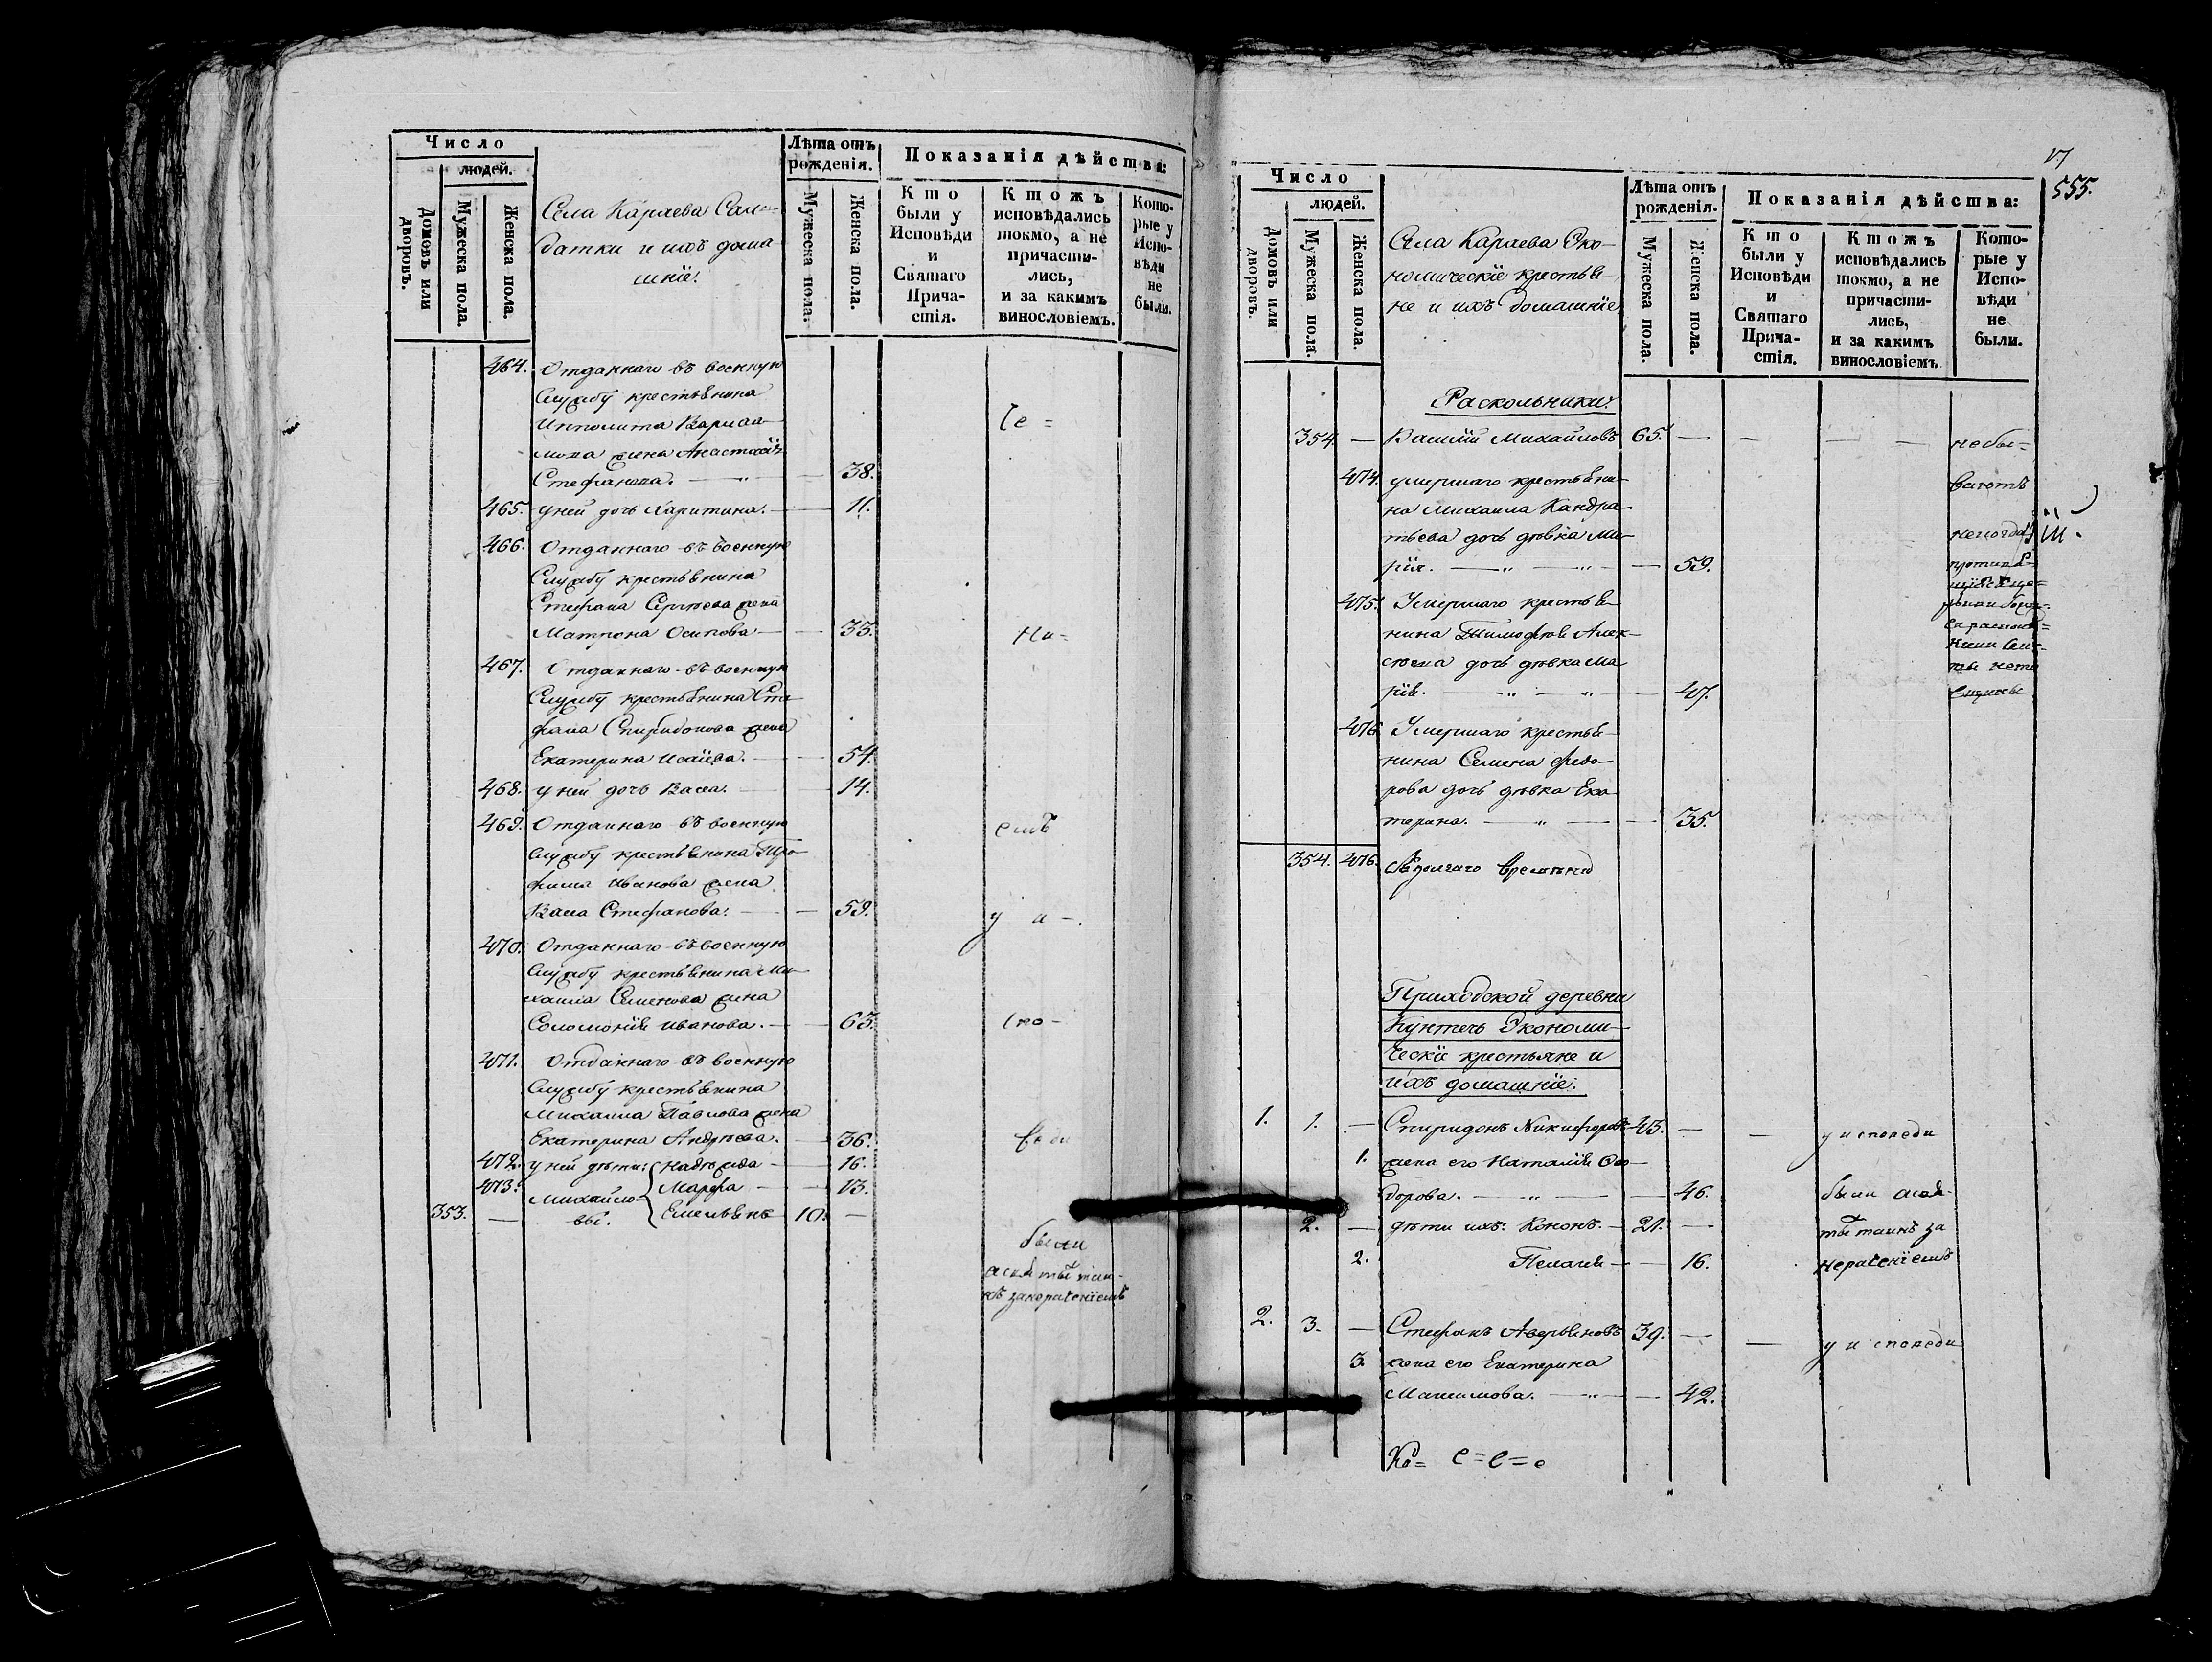 Число
людей.
Домовъ или дворовъ.
Мужеска пола.
Женска пола.
Села Караева Сал-
датки и ихъ дома
шніе.
Лѣта отъ
рожденія.
Мужеска пола.
Женска пола.
Показанія дѣйства:
Кто
были у
Исповѣди
и
Святаго
Прича-
стія.
Ктожъ
исповѣдались
токмо, а не
причасти-
лись,
и за какимъ
винословіемъ.
Кото-
рые у
Испо-
вѣди
не
были.
464. Отданнаго въ военную
службу крестьянина
Ипполита Варлаа-
мова жена Анастасія
Стефанова. — 38.
465. у ней дочь Харитина. — 11.
466. Отданнаго въ военную
службу крестьянина
Стефана Сергѣева жена
Матрона Осипова — 33.
467. Отданнаго въ военную
службу крестьянина Сте
фана Спиридонова жена
Екатерина Исаіева. — 54.
468. у ней дочь Васса. — 14.
469. Отданнаго въ военную
службу крестьянина Тро
фима Иванова жена
Васса Стефанова. — 59.
470. Отданнаго въ военную
службу крестьянина Ми
хаила Семенова жена
Соломонія Иванова. — 63.
471. Отданнаго въ военную
службу крестьянина
Михаила Павлова жена
Екатерина Андрѣева. — 36.
472. у ней дѣти: Надежда — 16.
473. Михайло- Марфа — 13.
353. — вы. Емельянъ 10. —
Се =
Ми=
емъ
у и -.
спо-
веди
были
а свя ты таи-
нъ занераченіемъ
17
555.
Число
людей.
Домовъ или дворовъ.
Мужеска пола.
Женска пола.
Села Караева Эко-
номическіе крестья-
не и ихъ домашніе
Лѣта отъ
рожденія.
Мужеска пола.
Женска пола.
Показанія дѣйства:
Кто
были у
Исповѣди
и
Святаго
Прича-
стія.
Ктожъ
исповѣдались
токмо, а не
причасти-
лись,
и за какимъ
винословіемъ.
Кото-
рые у
Испо-
вѣди
не
были.
Раскольники.
354. — Василій Михайловъ 65. — — — — небы-
474. умершаго крестьяни-
на Михаила Кандра-
тьева дочь дѣвка Ма-
рія. — — — 59.
475. Умершаго крестья
нина Тимофея Алек-
сѣева дочь дѣвка Ма
рія. — — — 47.
476. Умершаго крестья-
нина Семена Федо-
рова дочь дѣвка Ека
терина. — — — 35.
ваютъ
354. 476.
Приходской деревни
Кунтечь Экономи-
ческіе крестьяне и
ихъ домашніе.
1. 1. — Спиридонъ Никифоровъ 43. — — у исповеди
1. жена его Наталія Фео-
дорова. — — — 46. были а свя-
2. — дѣти ихъ: Кононъ. — 21. — ты таинъ за
2. Пелагія — — 16. нераченіемъ
2. 3. — Стефанъ Аверьяновъ 39. — — у исповеди
3. жена его Екатерина
Максимова. — — — 42.